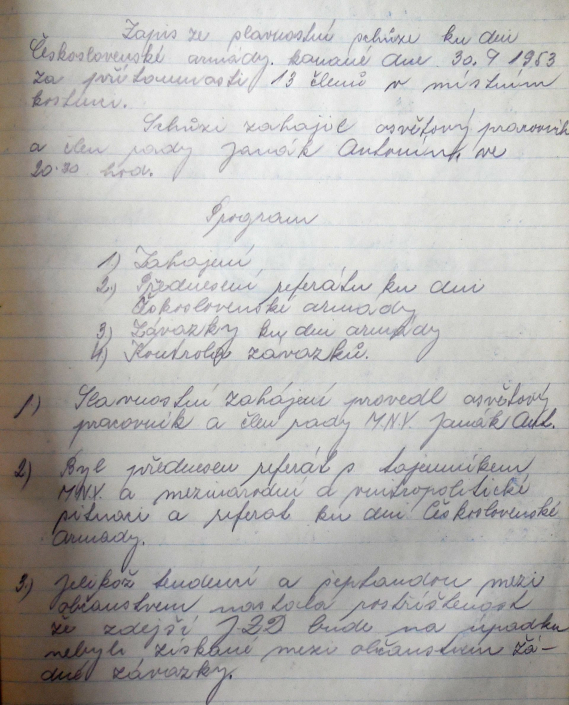 Zápis ze slavnostní schůze ku dni
Československé armády. konané dne 30. 9 1953
za přítomnosti 13 členů v místním
hostinci.
Schůzi zahájil osvětový pracovník
a člen rady Janák Antonín. ve
20.30 hod.
Program
1) Zahájení
2.) Přednesení referátu ku dni
Československé armády
3) Závazky ku dni armády
4) Kontrola závazků.
1) Slavnostní zahájení provedl osvětový
pracovník a člen rady M.N.V. Janák Ant.
2) Byl přednesen referát s tajemníkem
M.N.V. a mezinárodní a vnitropolitické
situaci a referát ku dni Československé
armády.
3.) Jelikož a šeptandou mezi
občanstvem nastala
že zdejší JZD bude na úpadku
nebyli získané mezi občanstvem žá-
dné závazky.